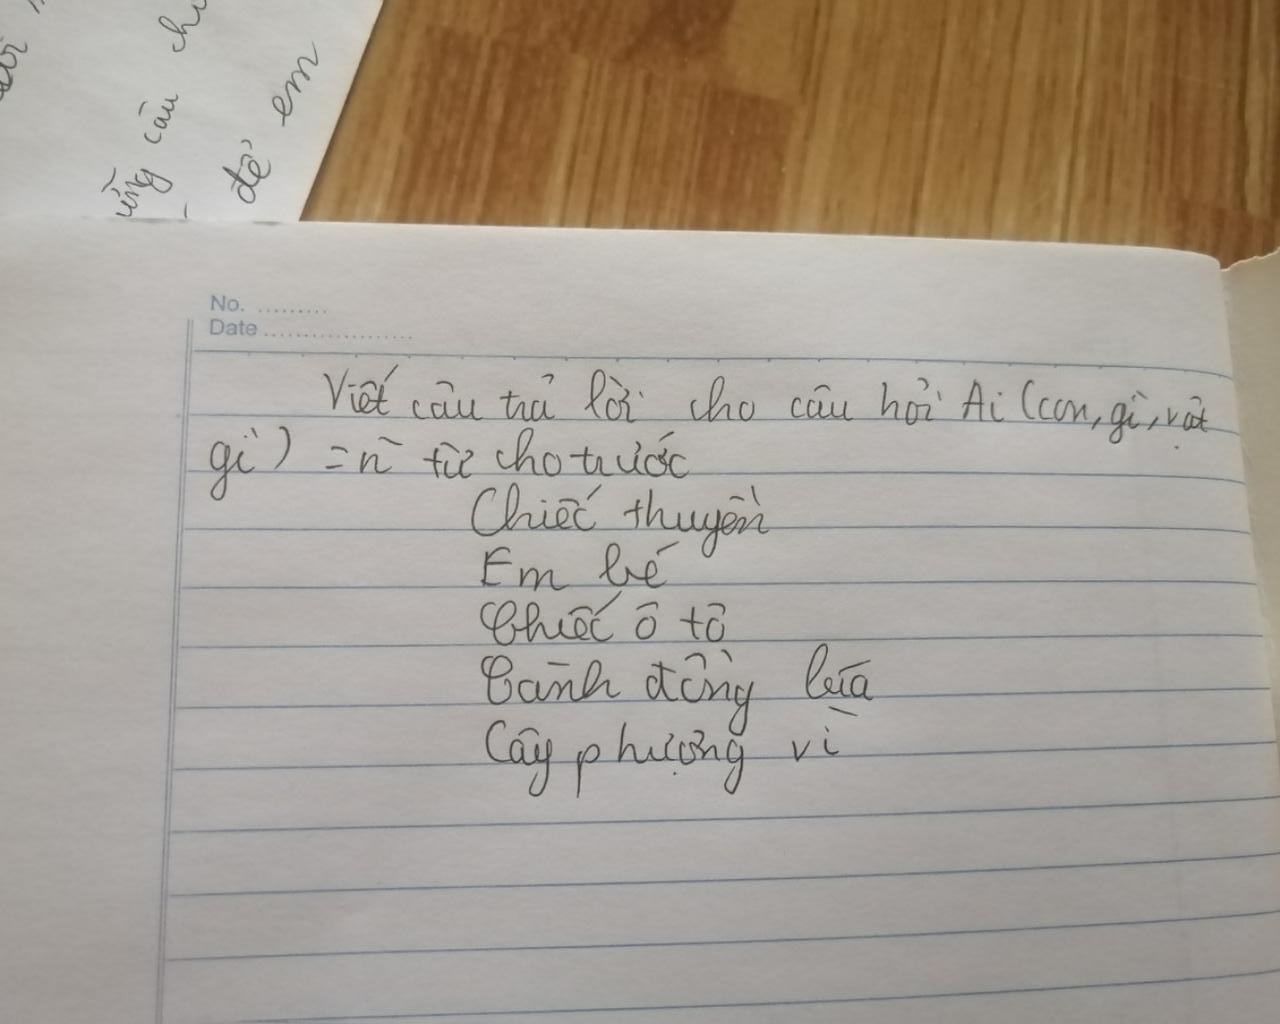 ững câu ch
để em
No. .........
Date ...................
Viết câu trả lời cho câu hỏi Ai (con, gì, vật
gì) = n~ từ cho trước
Chiếc thuyền
Em bé
Chiếc ô tô
Cành đồng lúa
Cây phượng vĩ